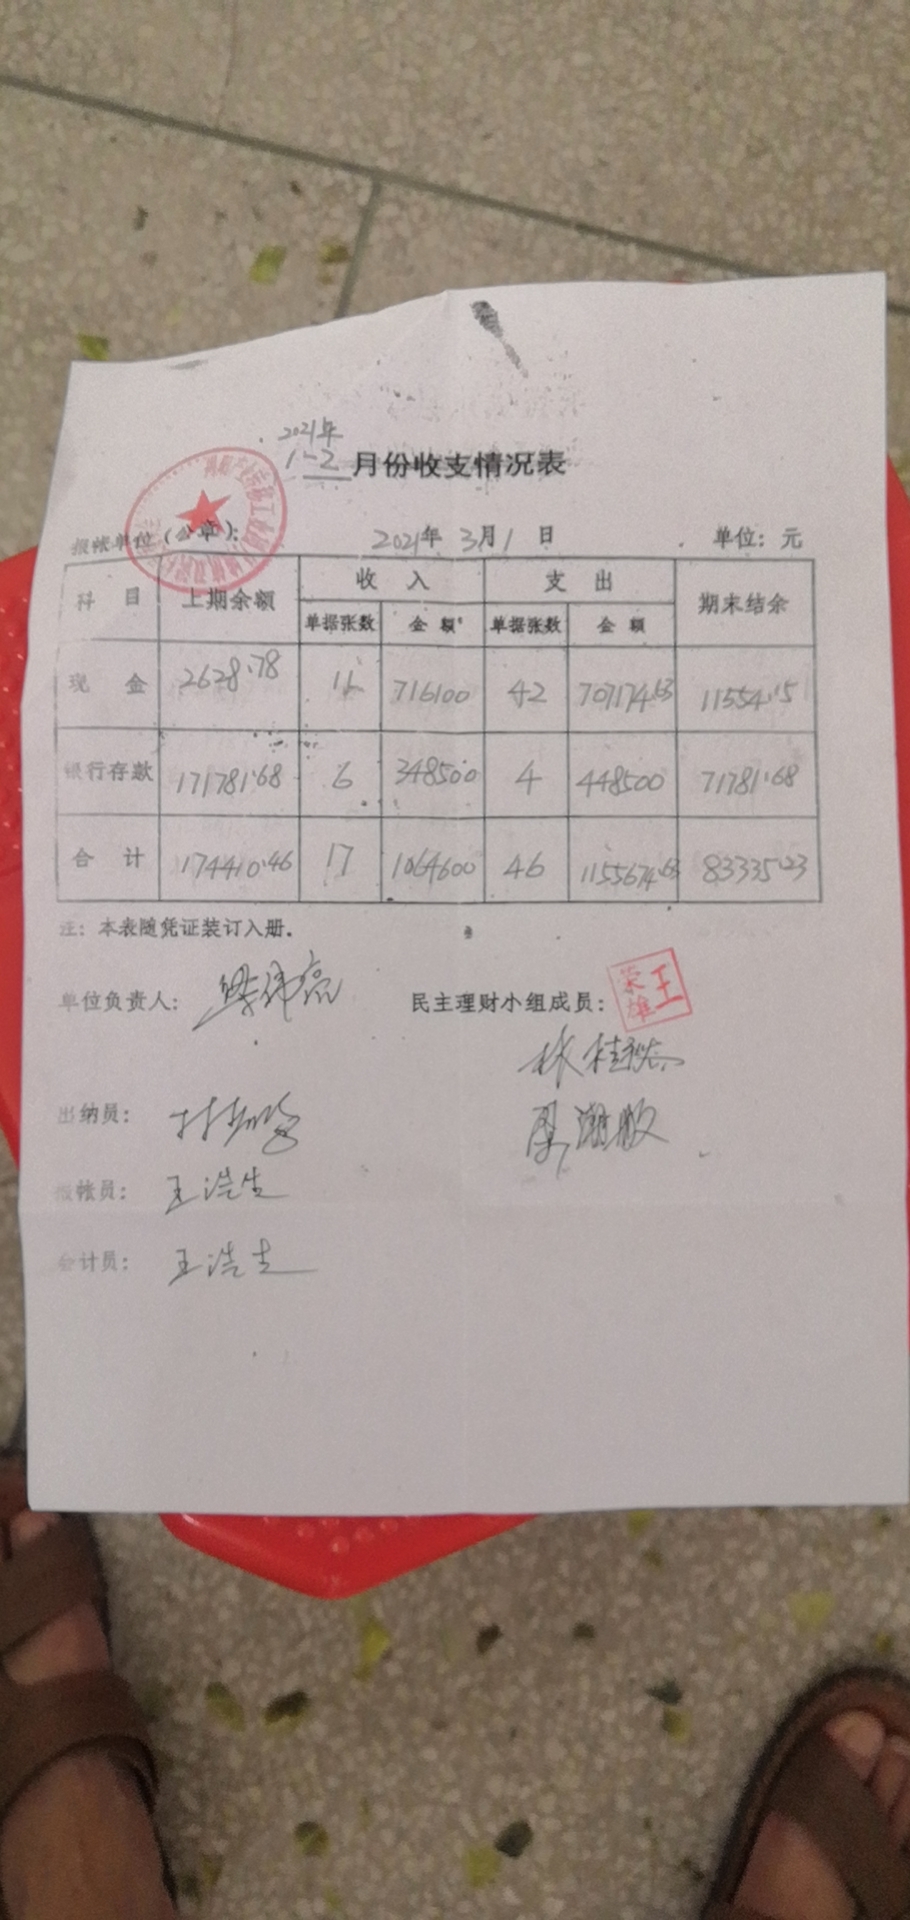 2021年
1-2 月份收支情况表
报帐单位(公章): 2021年 3月1日 单位:元
科 目 上期余额 收 入 支 出 期末结余
单据张数 金 额 单据张数 金 额
现 金 2628.78 11 716100 42 707174.63 11554.15
银行存款 171781.68 6 348500 4 448500 71781.68
合 计 174410.46 17 1064600 46 1155674.63 83335.23
注: 本表随凭证装订入册.
单位负责人: 民主理财小组成员: 王荣雄
林桂
出纳员:
报帐员: 王浩生
会计员: 王浩生